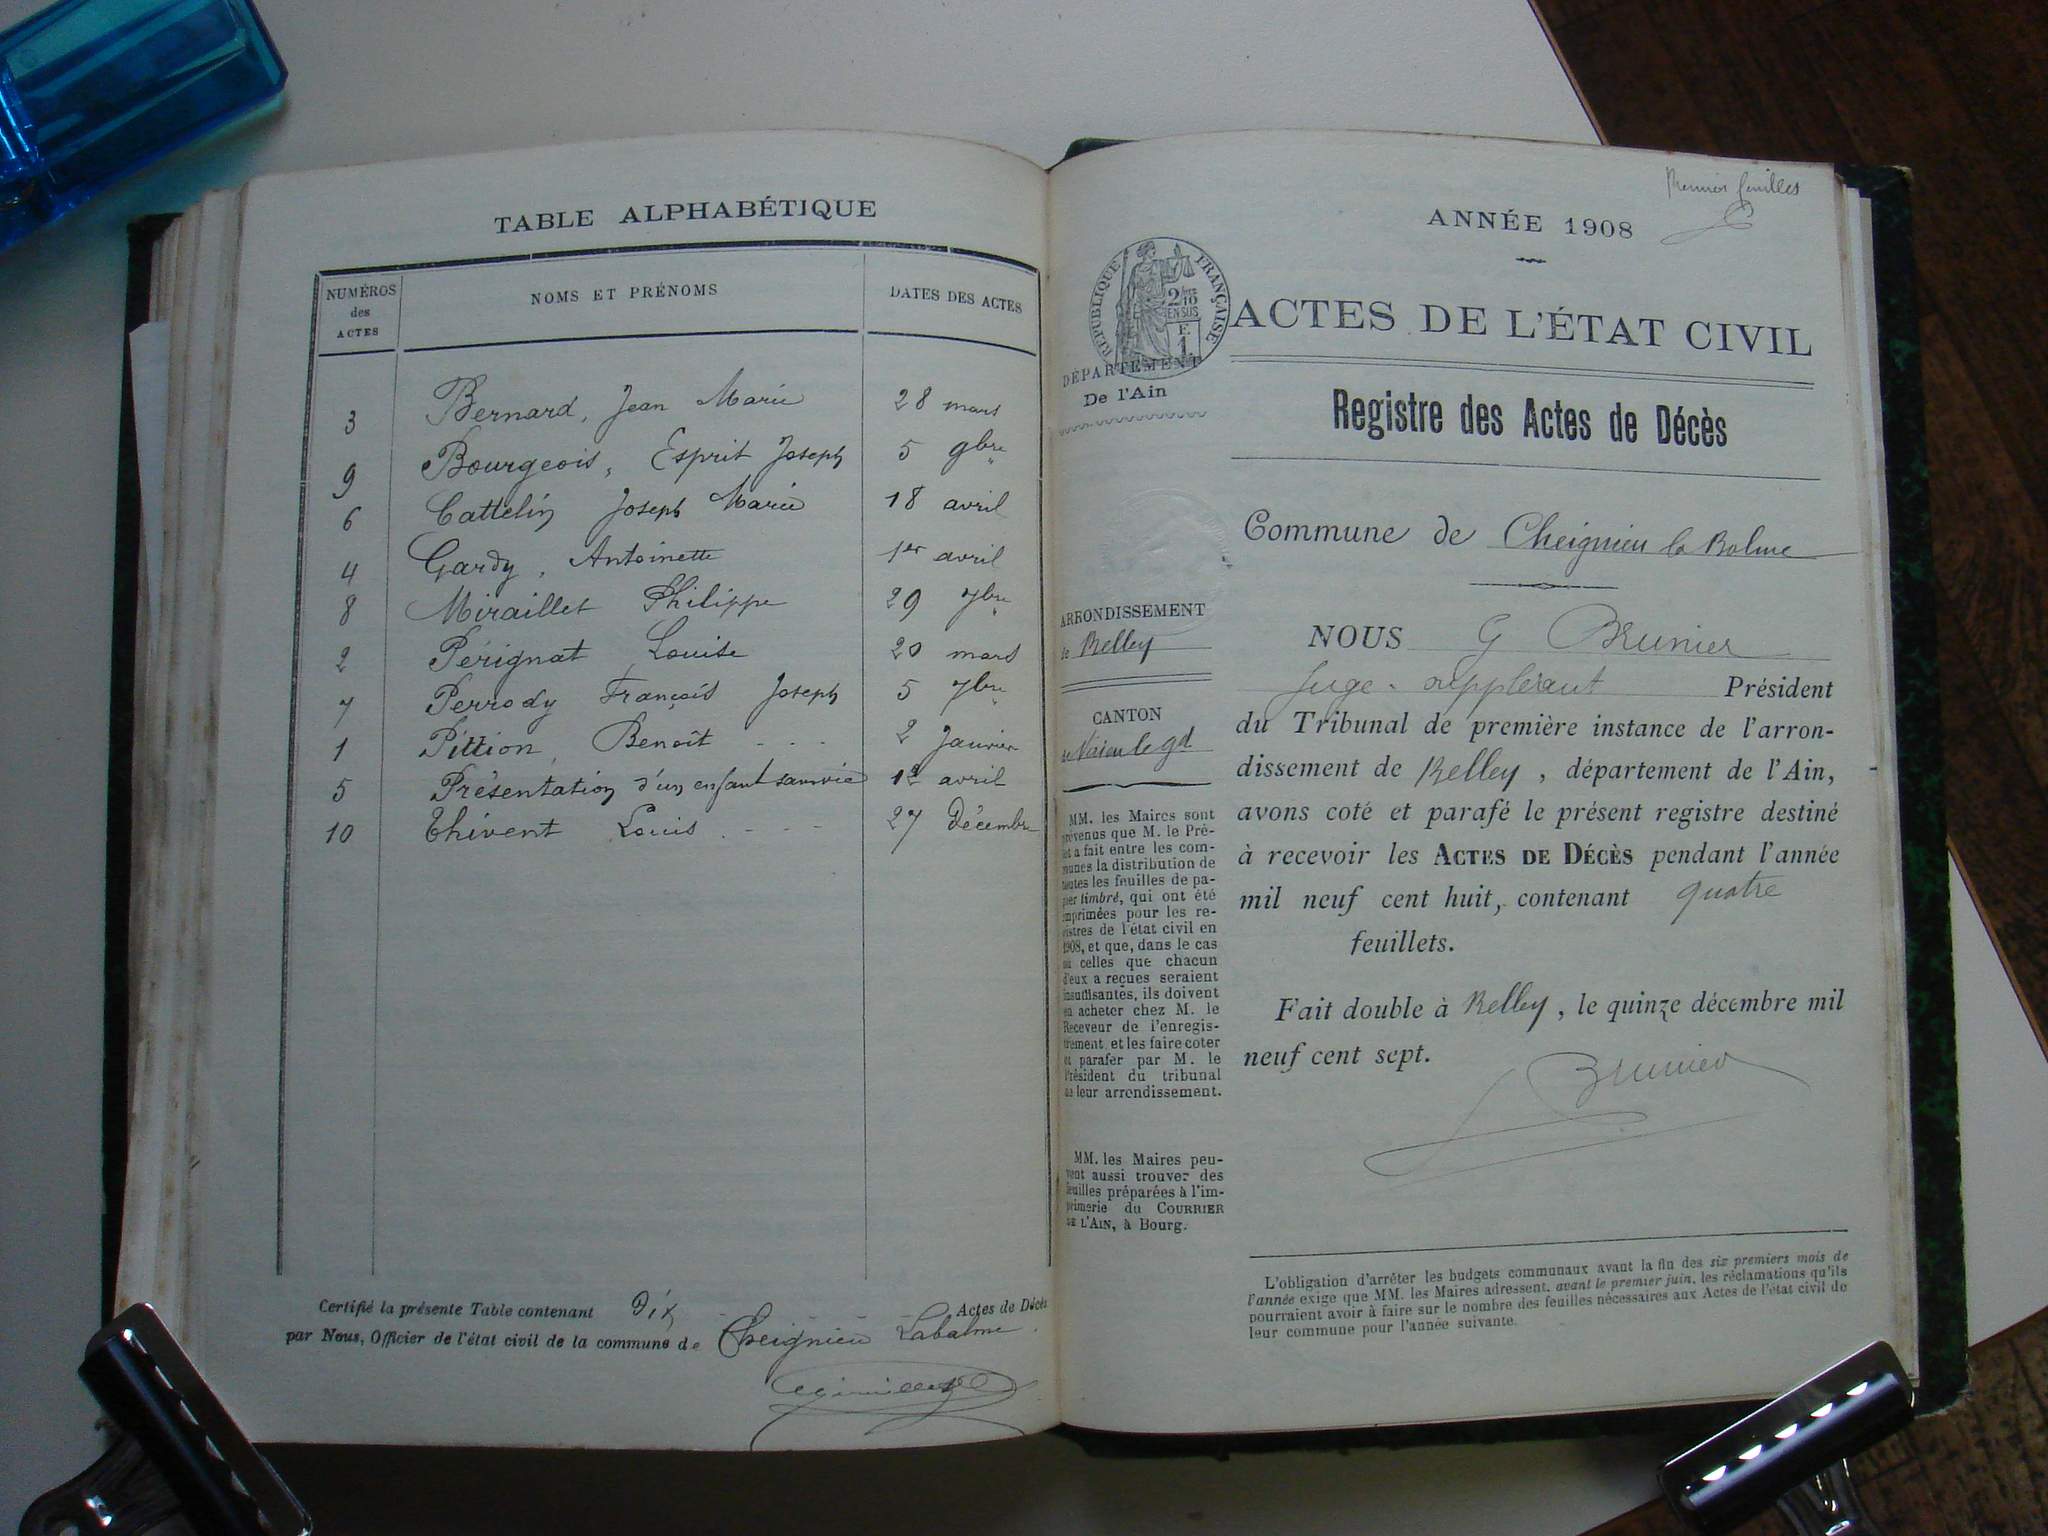 TABLE ALPHABÉTIQUE
NUMÉROS des ACTES NOMS ET PRÉNOMS DATES DES ACTES
3 Bernard, Jean Marie 28 mars
9 Bourgeois, Esprit Joseph 5 9bre
6 Cattelin Joseph Marie 18 avril
4 Gardy, Antoinette 1er avril
8 Miraillet Philippe 29 7bre
2 Pérignat Louise 20 mars
7 Perrody François Joseph 5 7bre
1 Pittion, Benoît - - - 2 Janvier
5 Présentation d'un enfant sans vie 12 avril
10 Thivent Louis - - - 27 Décembre
Certifié la présente Table contenant Dix Actes de Décès
par Nous, Officier de l'état civil de la commune de Cheignieu Labalme
Premier feuillet
ANNÉE 1908
RÉPUBLIQUE FRANÇAISE
2/10
EN SUS
F
1
ACTES DE L'ÉTAT CIVIL
DÉPARTEMENT
De l'Ain
Registre des Actes de Décès
Commune de Cheignieu la Balme
ARRONDISSEMENT
de Belley
CANTON
de Virieu le gd
MM. les Maires sont
prévenus que M. le Pré-
fet a fait entre les com-
munes la distribution de
toutes les feuilles de pa-
pier timbré, qui ont été
imprimées pour les re-
gistres de l'état civil en
1908, et que, dans le cas
où celles que chacun
d'eux a reçues seraient
insuffisantes, ils doivent
en acheter chez M. le
Receveur de l'enregis-
trement, et les faire coter
et parafer par M. le
Président du tribunal
de leur arrondissement.
MM. les Maires peu-
vent aussi trouver des
feuilles préparées à l'im-
primerie du COURRIER
DE L'AIN, à Bourg.
NOUS G Brunier
Juge suppléant Président
du Tribunal de première instance de l'arron-
dissement de Belley, département de l'Ain,
avons coté et parafé le présent registre destiné
à recevoir les ACTES DE DÉCÈS pendant l'année
mil neuf cent huit, contenant quatre
feuillets.
Fait double à Belley, le quinze décembre mil
neuf cent sept.
Brunier
L'obligation d'arrêter les budgets communaux avant la fin des six premiers mois de
l'année exige que MM. les Maires adressent, avant le premier juin, les réclamations qu'ils
pourraient avoir à faire sur le nombre des feuilles nécessaires aux Actes de l'état civil de
leur commune pour l'année suivante.